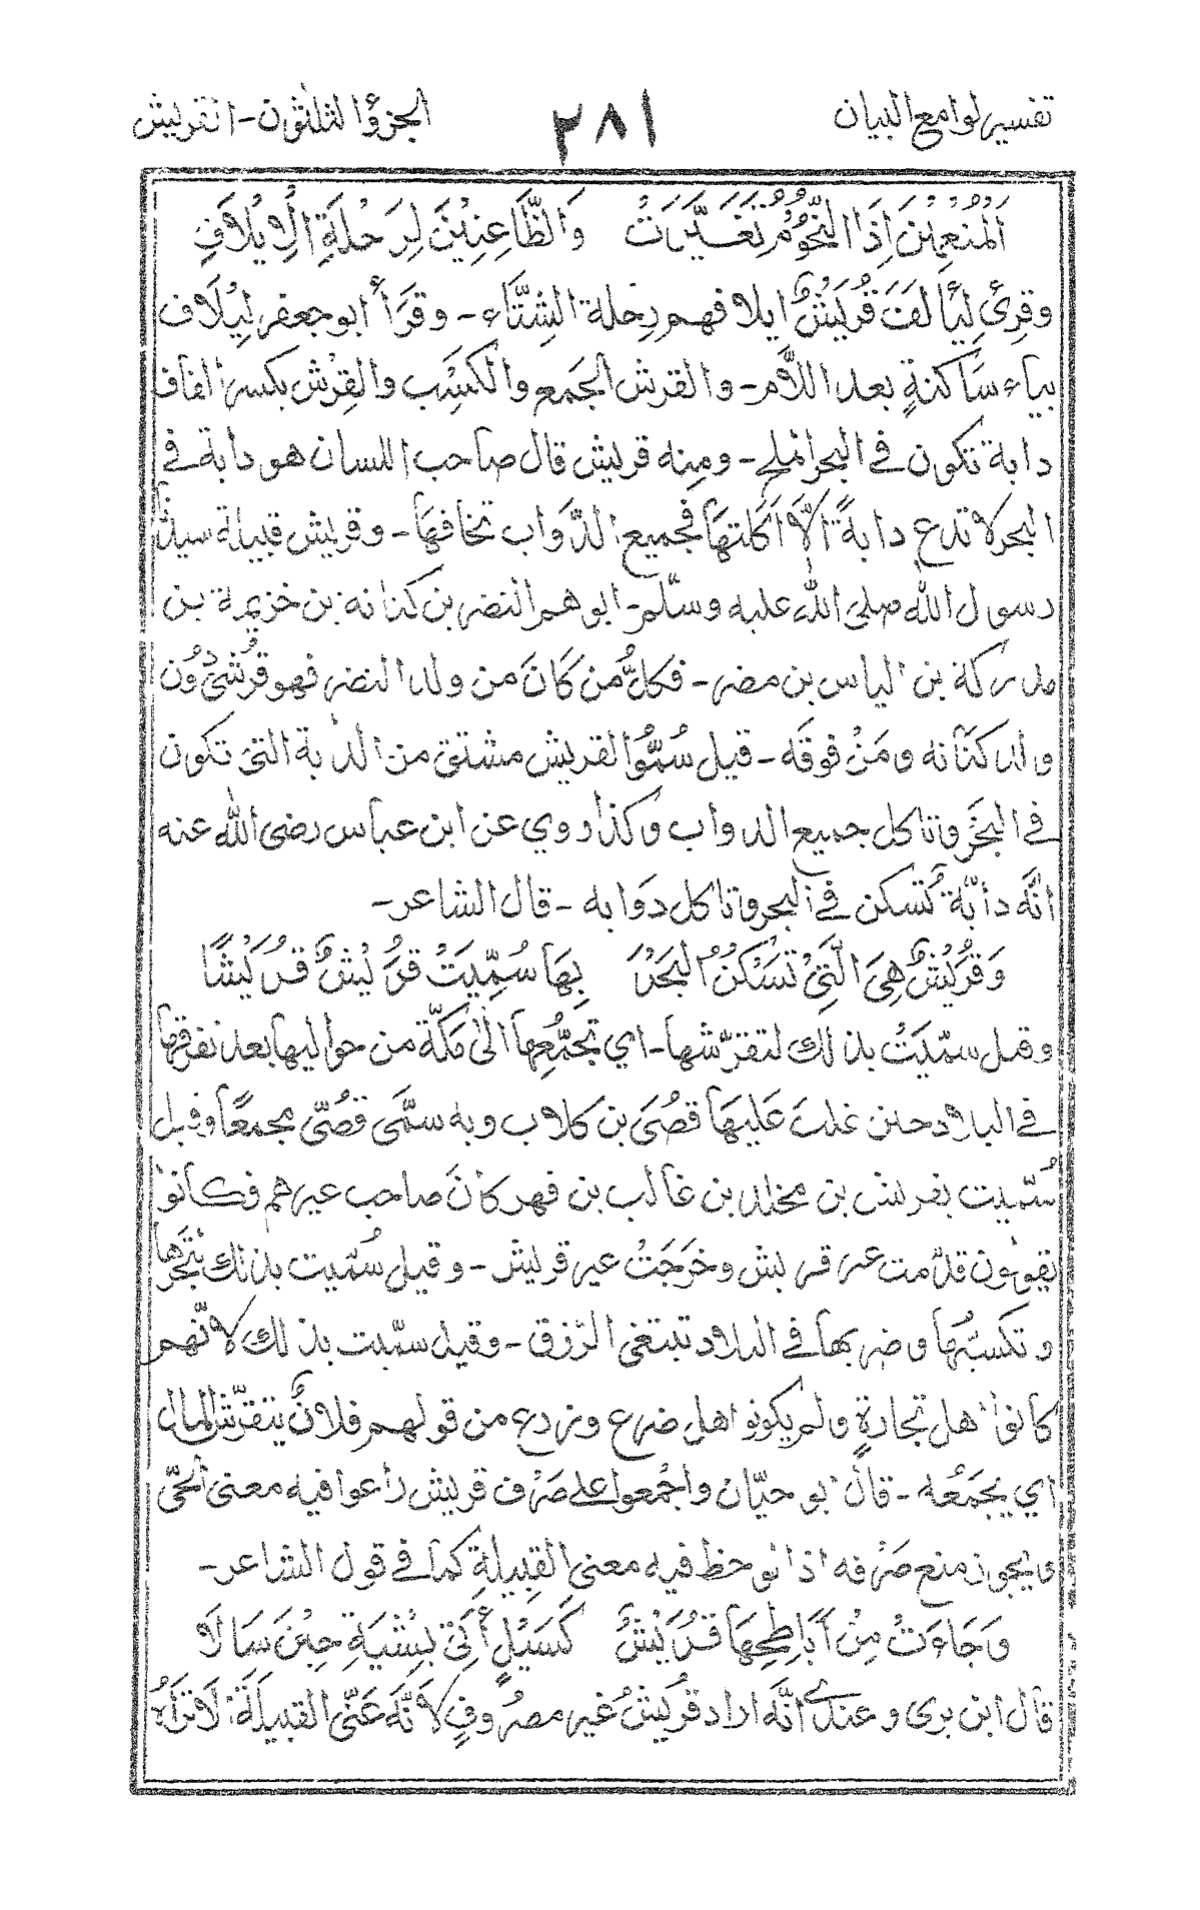 تفسير لوامع البيان ٢٨١ الجزؤ الثلثون - القريش
اَلْمُنْعِمِيْنَ اِذَا النُّجُوْمُ تَغَيَّرَتْ وَالظَّاعِنِيْنَ لِرَحْلَةِ الْإِيْلَافِ
وقرئ لِيَأْلَفَ قُرَيْشٌ ايلافهم رِحلة الشتَّاء - وقَرَأ ابو جعفر لِيْلَاف
بياء سَاكنةٍ بعد اللاَّم - والقرش الجمع والكسْب والقِرْش بكسر القاف
دابة تكون في البحر الملح - ومِنه قريش قال صاحب اللسان هو دابة في
البحر لا تدع دابةً الاَّ اَكلتهَا فجميع الدَّواب تخافهَا - وقريش قبيلة سيدنا
رسول الله صلى الله عليه وسلّم - ابوهم النضر بن كنانه بن خزيمة بن
مدركة بن الياس بن مضر - فكلُّ من كَانَ من ولد النضر فهو قُرَشيٌّ دُون
ولد كنَانه ومَنْ فوقَه - قيل سُمُّوا القريش مشتق من الدابة التي تكون
في البحَر وتاكل جميع الدواب وكذا روي عن ابن عباس رضى الله عنه
انَّه دابّة تُسكن في البحر وتاكل دَوابه - قال الشاعر -
وَقُرَيْشٌ هِيَ الَّتِيْ تَسْكُنُ الْبَحْرَ بِهَا سُمِّيَتْ قُرَيْشٌ قُرَيْشًا
وقيل سمّيَتْ بذلك لتقرّشها - اي تجَمُّعِهَا الٰى مَكّة من حواليها بعد تفرقها
في البلاد حين غلبَ عَليهَا قصُىَ بن كلاب وبه سمَّى قصُىّ مجمعًا وقيل
سُمّيت بقريش بن مخلد بن غالب بن فهر كانَ صاحب عيرهم فكانوا
يقولون قدّمت عير قريش وخرَجَتْ عير قريش - وقيل سُمّيت بذلك لتَجْرها
وتكسُّبهَا وضربها في البلاد تبتغى الرّزق - وقيل سمّيت بذلك لانّهم
كانوا اهل تجارةٍ ولم يكونوا اهل ضرع وزرع من قولهم فلانٌ يتقرّش المال
اي يجمَعُه - قال ابو حيّان واجْمعوا على صَرْف قريش راعوا فيه معنى الحَىّ
ويجوز منع صَرْفه اذا لوحظ فيه معنى القبيلةِ كما في قول الشاعر -
وَجَاءَتْ مِنْ اَبَاطِحِهَا قُرَيْشُ كَسَيْلِ أَتِيِّ بِيْشَةِ حِيْنَ سَالَا
قال ابن برى وعندى انَّه اراد قُريْشُ غير مصرُوفٍ لاَنَّه عَنَى القبيلَةَ الا تَراهُ